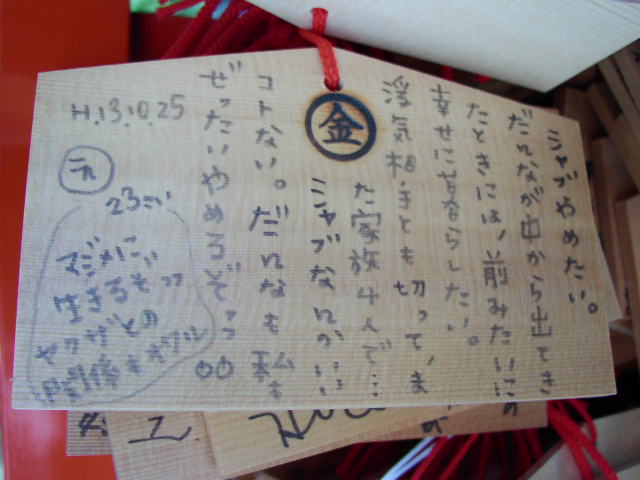 シャブやめたい。
だんなが中から出てき
たときには、前みたいにの
幸せに暮らしたい。
浮気相手とも切って、ま
た家族4人で…
シャブなんかいい
コトない。だんなも私も
ぜったいやめるぞっっ
H.13.10.25
金
23こい
マジメに
生きるぞっっ
ヤクザとの
関係もオワル